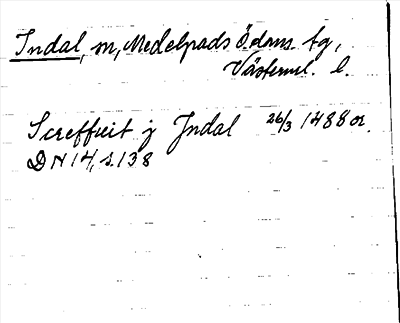 Indal, sn, Medelpads ö doms. tg,
Västernl. l.
Screffuit j Jndal 26/3 1488 or.
DN 14, s. 138